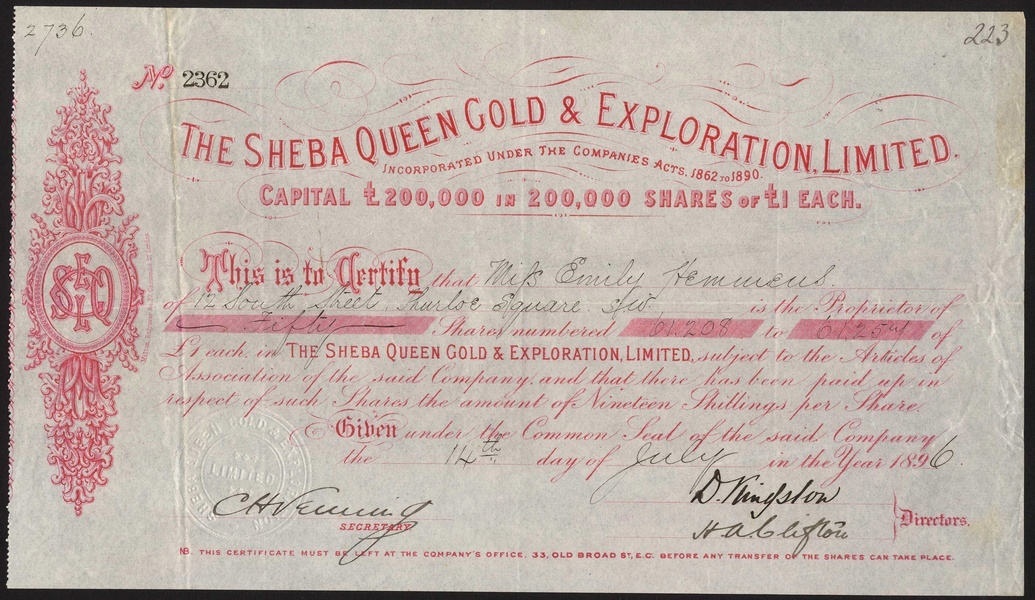 2736.
223
No. 2362
THE SHEBA QUEEN GOLD & EXPLORATION, LIMITED.
INCORPORATED UNDER THE COMPANIES ACTS, 1862 TO 1890.
CAPITAL £200,000 IN 200,000 SHARES OF £1 EACH.
This is to Certify that Miss Emily Hemmens.
of 12 South Street, Thurloe Square. SW. is the Proprietor of
Fifty Shares numbered 61.208 to 61.257 of
£1 each, in THE SHEBA QUEEN GOLD & EXPLORATION, LIMITED, subject to the Articles of
Association of the said Company, and that there has been paid up in
respect of such Shares the amount of Nineteen Shillings per Share.
Given under the Common Seal of the said Company
the 14th day of July in the Year 1896.
SHEBA QUEEN GOLD &
LIMITED
SECRETARY
D. Kingston
H A Clifton
Directors.
NB. THIS CERTIFICATE MUST BE LEFT AT THE COMPANY'S OFFICE, 33, OLD BROAD ST, E.C. BEFORE ANY TRANSFER OF THE SHARES CAN TAKE PLACE.